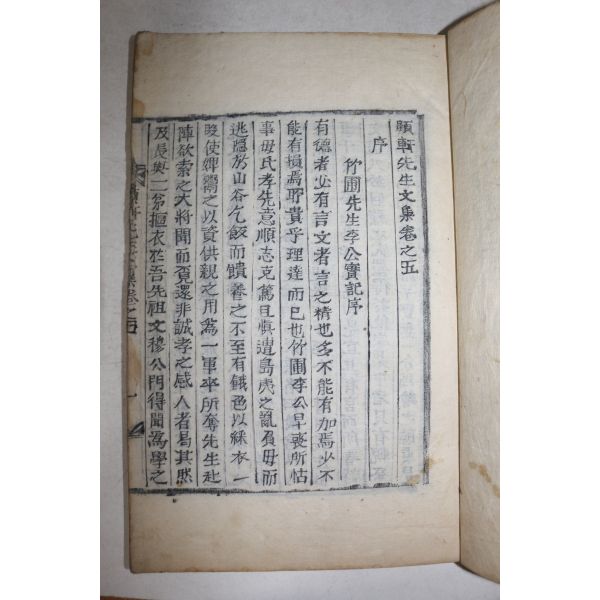 頤軒先生文集卷之五
序
竹圃先生李公實記序
有德者必有言文者言之精也多不能有加焉少不
能有損焉所貴乎理達而已也竹圃李公早喪所怙
事毋氏孝先意順志克篤且愼遭島夷之亂負毋而
逃隱於山谷乞飯而饋養之不至有餓色以綵衣一
晙使婢鬻之以資供親之用爲一軍卒所奪先生赴
陣欲索之大將聞而覔還非誠孝之感人者曷其然
及長與二弟摳衣於吾先祖文穆公門得聞爲學之
軒先生文集卷之五
一